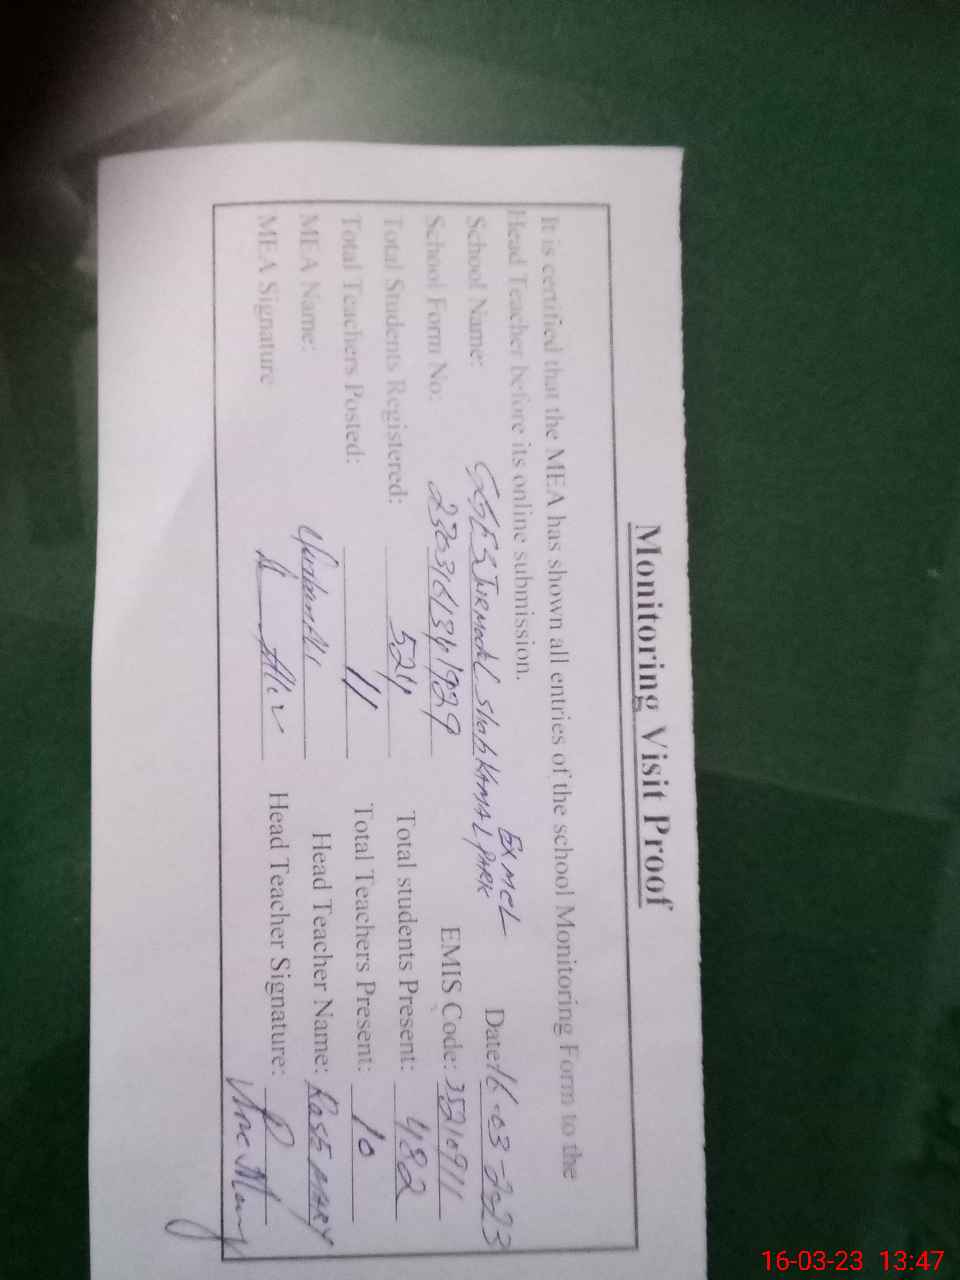 Monitoring Visit Proof
It is certified that the MEA has shown all entries of the school Monitoring Form to the
Head Teacher before its online submission.
EX MCL
School Name: KAMAL PARK Date: 16-03-2023
School Form No: EMIS Code: 35210911
Total Students Registered: 524 Total students Present: 482
Total Teachers Posted: 11 Total Teachers Present: 10
MEA Name: Head Teacher Name: ROSE MARY
MEA Signature Head Teacher Signature:
16-03-23 13:47